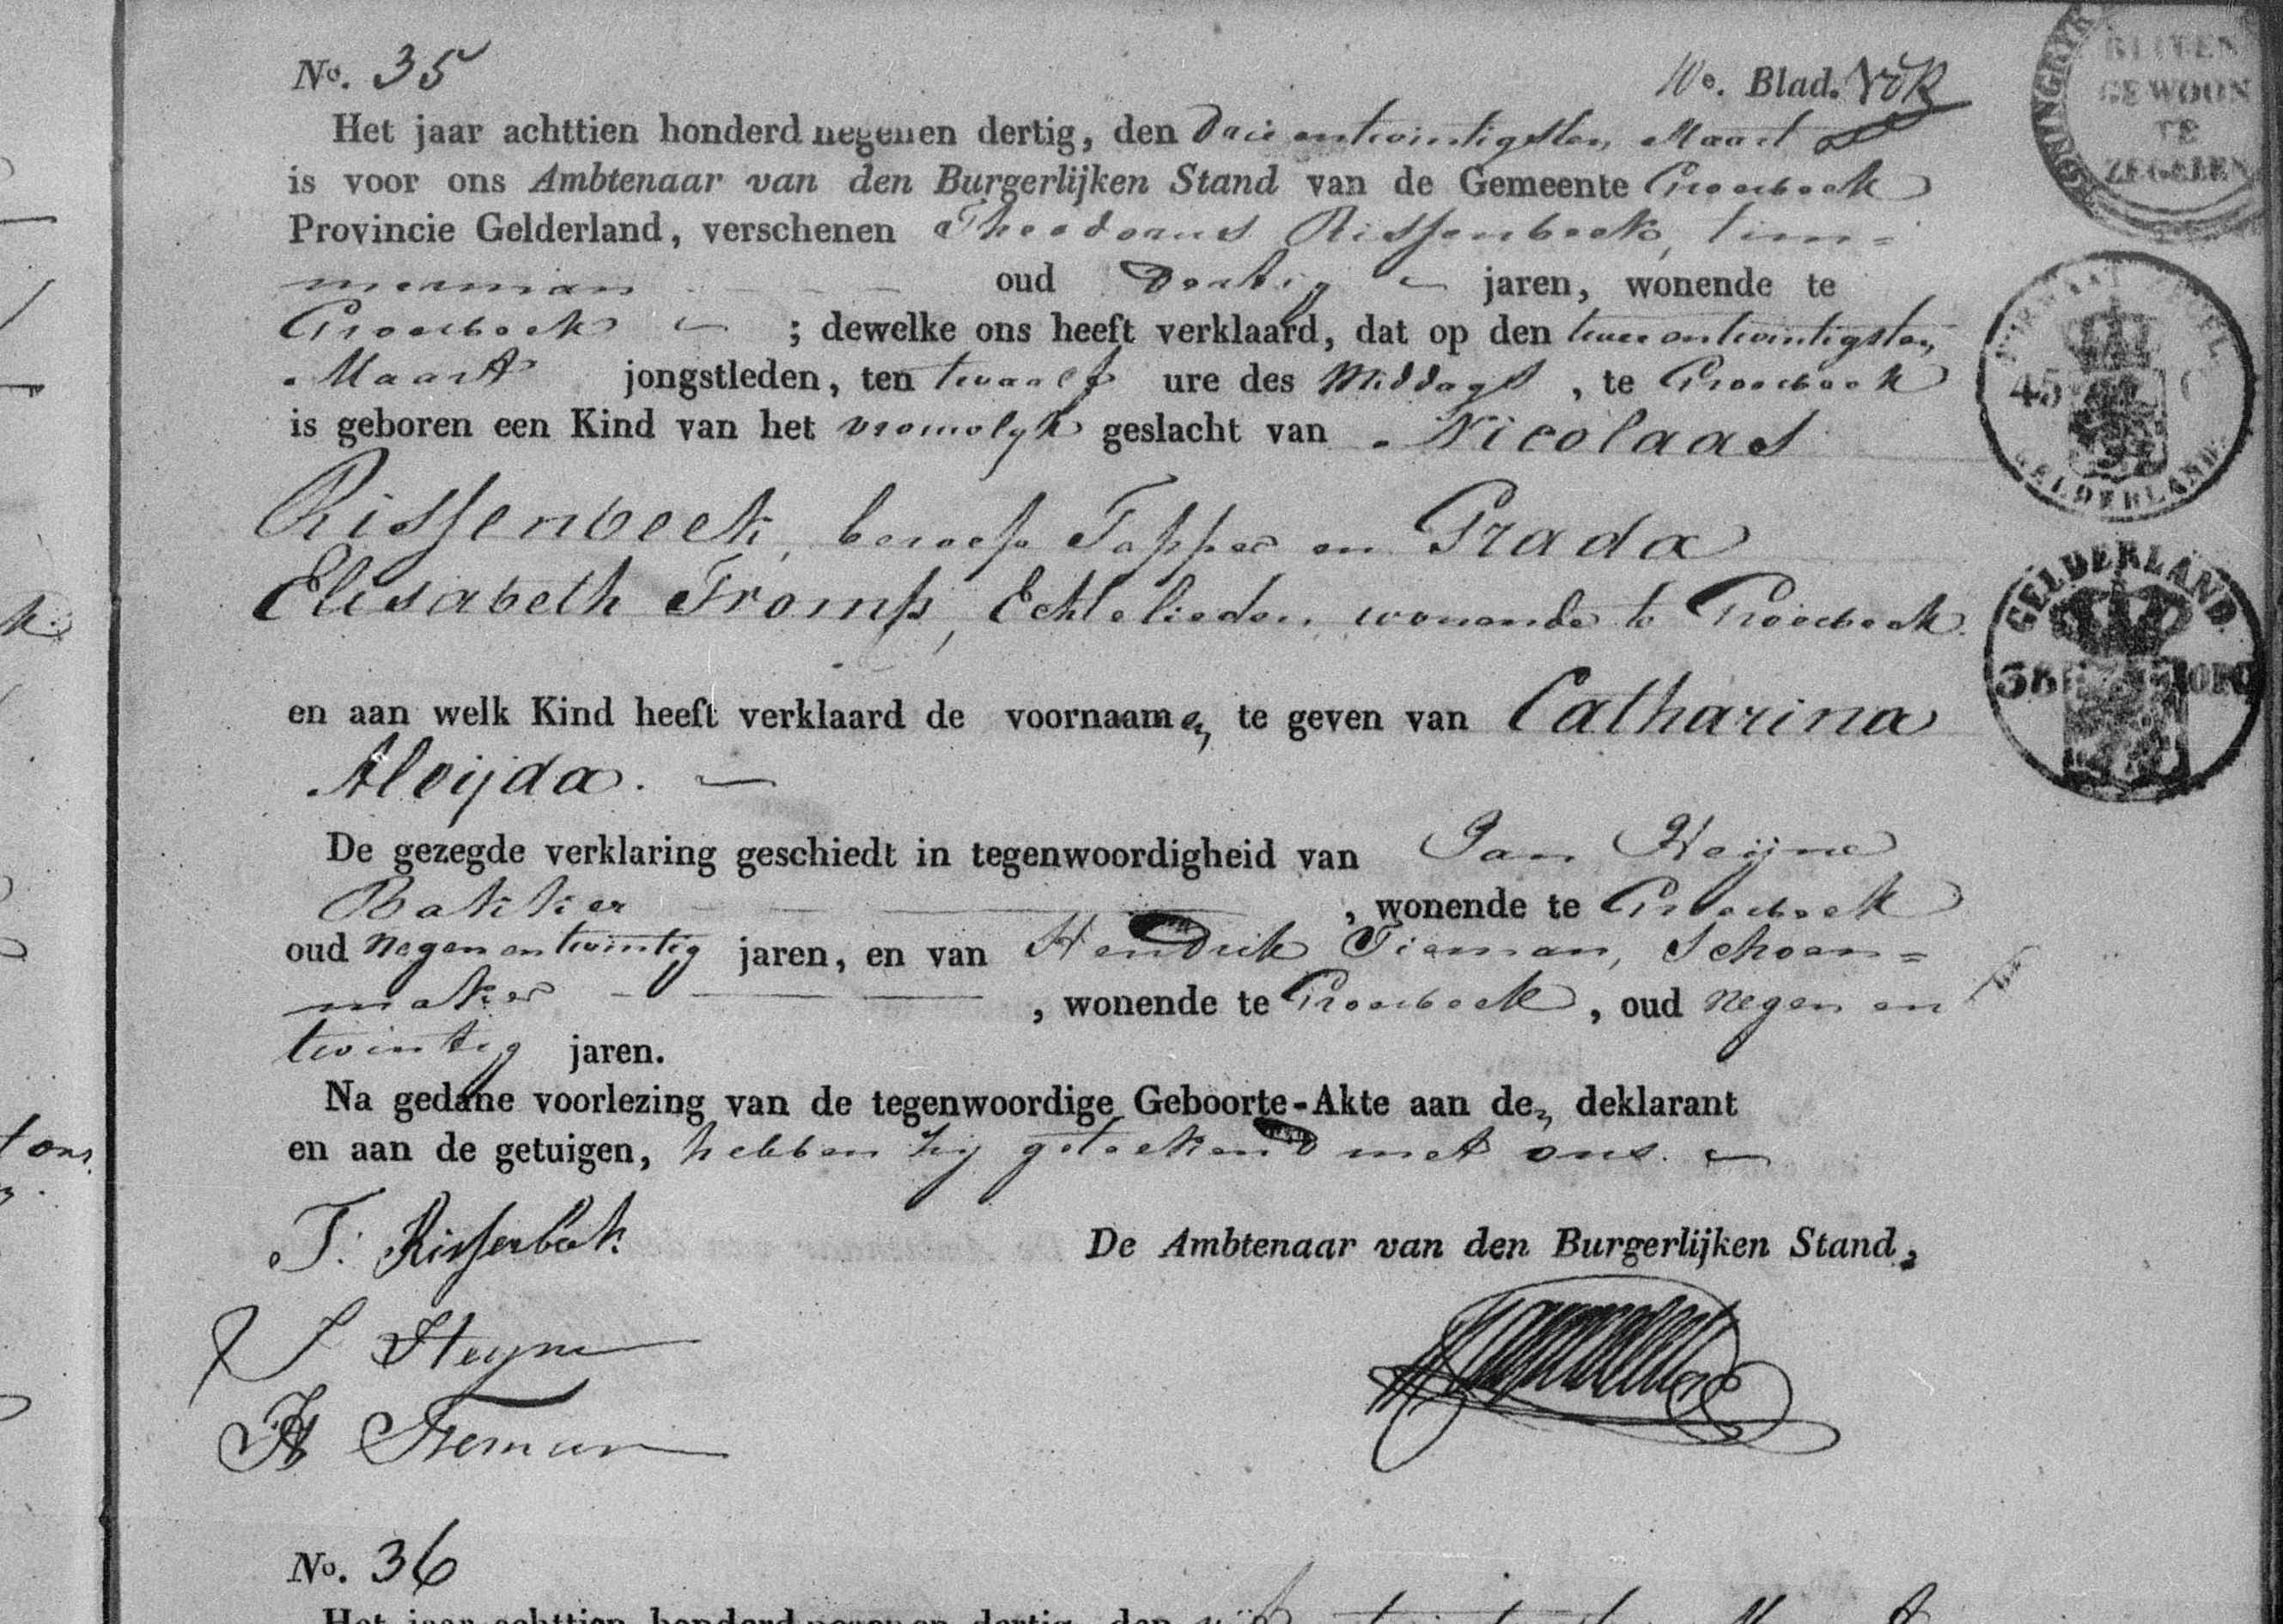 No. 35
10e. Blad.
Het jaar achttien honderd negen en dertig, den Drie entwintigsten Maart
is voor ons Ambtenaar van den Burgerlijken Stand van de Gemeente Groesbeek
Provincie Gelderland, verschenen Theodorus Rissenbeek, tim=
merman oud Dertig jaren, wonende te
Groesbeek ; dewelke ons heeft verklaard, dat op den twee entwintigsten
Maart jongstleden, ten twaalf ure des Middags, te Groesbeek
is geboren een Kind van het vrouwelyk geslacht van Nicolaas
Rissenbeek, beroep Tapper en Grada
Elisabeth Tromp, Echtelieden, wonende te Groesbeek.
en aan welk Kind heeft verklaard de voornaamen te geven van Catharina
Aleijda. —
De gezegde verklaring geschiedt in tegenwoordigheid van Jan Heijne
Bakker , wonende te Groesbeek
oud negen entwintig jaren, en van Hendrik Tieman, Schoen=
maker , wonende te Groesbeek, oud negen en
twintig jaren.
Na gedane voorlezing van de tegenwoordige Geboorte-Akte aan den deklarant
en aan de getuigen, hebben zij geteekend met ons. —
T. Rissenbeek
De Ambtenaar van den Burgerlijken Stand,
J Heyne
H Tieman
No. 36
BUITEN
GEWOON
TE
ZEGELEN
KONINGRYK
45
GELDERLAND
GELDERLAND
38 OPC